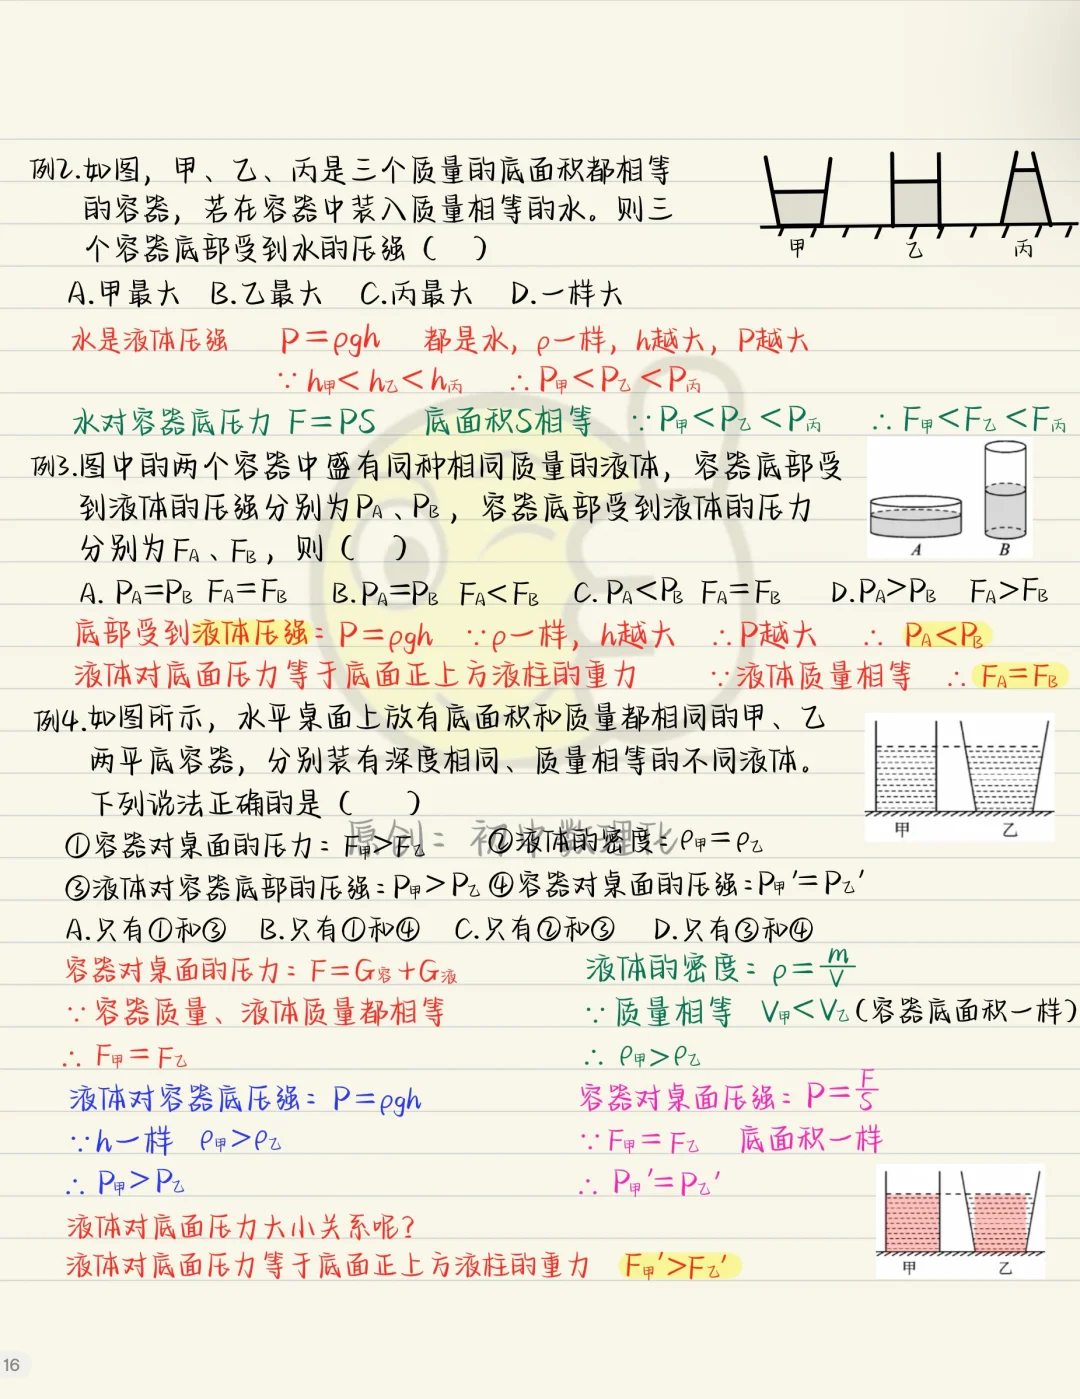 例2.如图，甲、乙、丙是三个质量的底面积都相等
的容器，若在容器中装入质量相等的水。则三
个容器底部受到水的压强（ ）
甲 乙 丙
A.甲最大 B.乙最大 C.丙最大 D.一样大
水是液体压强 P=ρgh 都是水，ρ一样，h越大，P越大
∵h甲<h乙<h丙 ∴P甲<P乙<P丙
水对容器底压力 F=PS 底面积S相等 ∵P甲<P乙<P丙 ∴F甲<F乙<F丙
例3.图中的两个容器中盛有同种相同质量的液体，容器底部受
到液体的压强分别为PA、PB，容器底部受到液体的压力
分别为FA、FB，则（ ）
A B
A. PA=PB FA=FB B.PA=PB FA<FB C.PA<PB FA=FB D.PA>PB FA>FB
底部受到液体压强：P=ρgh ∵ρ一样，h越大 ∴P越大 ∴ PA<PB
液体对底面压力等于底面正上方液柱的重力 ∵液体质量相等 ∴FA=FB
例4.如图所示，水平桌面上放有底面积和质量都相同的甲、乙
两平底容器，分别装有深度相同、质量相等的不同液体。
下列说法正确的是（ ）
甲 乙
原创：初中数理化
①容器对桌面的压力：F甲>F乙 ②液体的密度：ρ甲=ρ乙
③液体对容器底部的压强：P甲>P乙 ④容器对桌面的压强：P甲′=P乙′
A.只有①和③ B.只有①和④ C.只有②和③ D.只有③和④
容器对桌面的压力：F=G容+G液 液体的密度：ρ=m/V
∵容器质量、液体质量都相等 ∵质量相等 V甲<V乙(容器底面积一样)
∴F甲=F乙 ∴ρ甲>ρ乙
液体对容器底压强：P=ρgh 容器对桌面压强：P=F/S
∵h一样 ρ甲>ρ乙 ∵F甲=F乙 底面积一样
∴P甲>P乙 ∴P甲′=P乙′
液体对底面压力大小关系呢?
液体对底面压力等于底面正上方液柱的重力 F甲′>F乙′
甲 乙
16